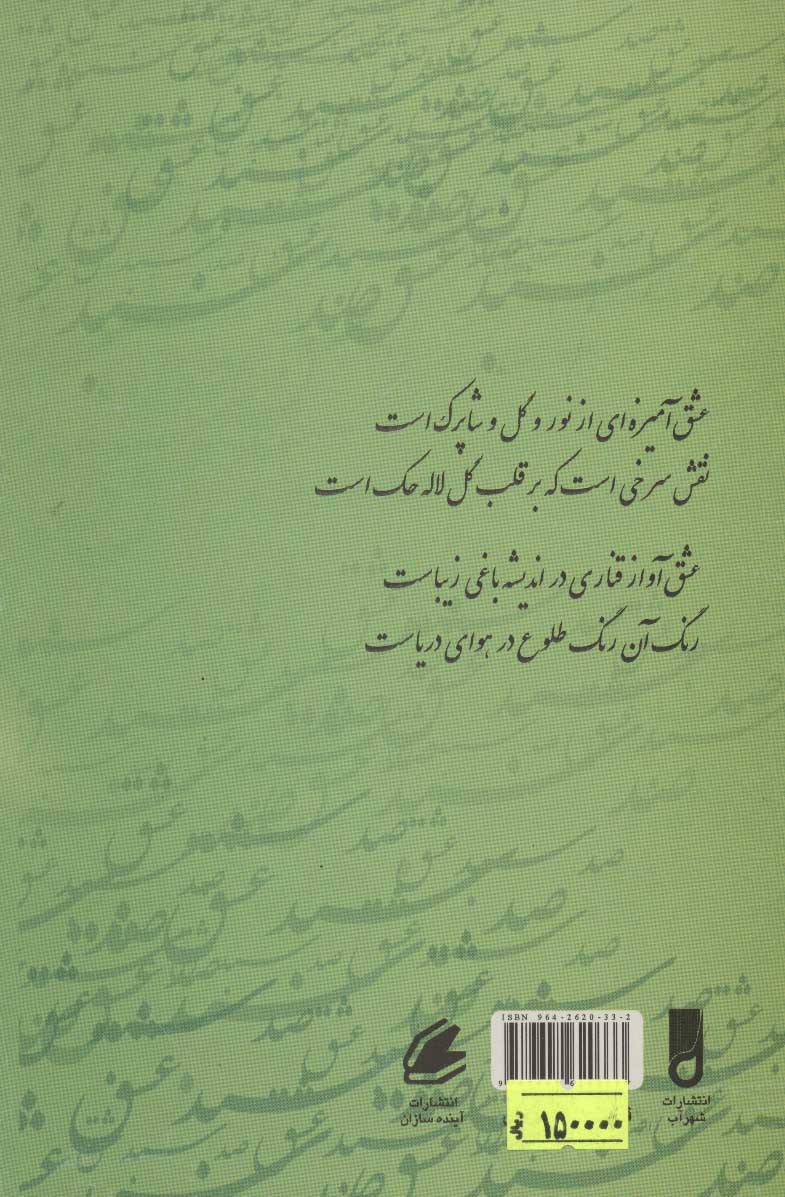 عشق آمیزه‌ای از نور و گل و شاپرک است
نقش سرخی است که بر قلب گل لاله حک است
عشق آواز قناری در اندیشه باغی زیباست
رنگ آن رنگ طلوع در هوای دریاست
ISBN 964-2620-33-2
انتشارات
شهرآب
انتشارات
آینده سازان
۱۵۰۰۰۰ ریال